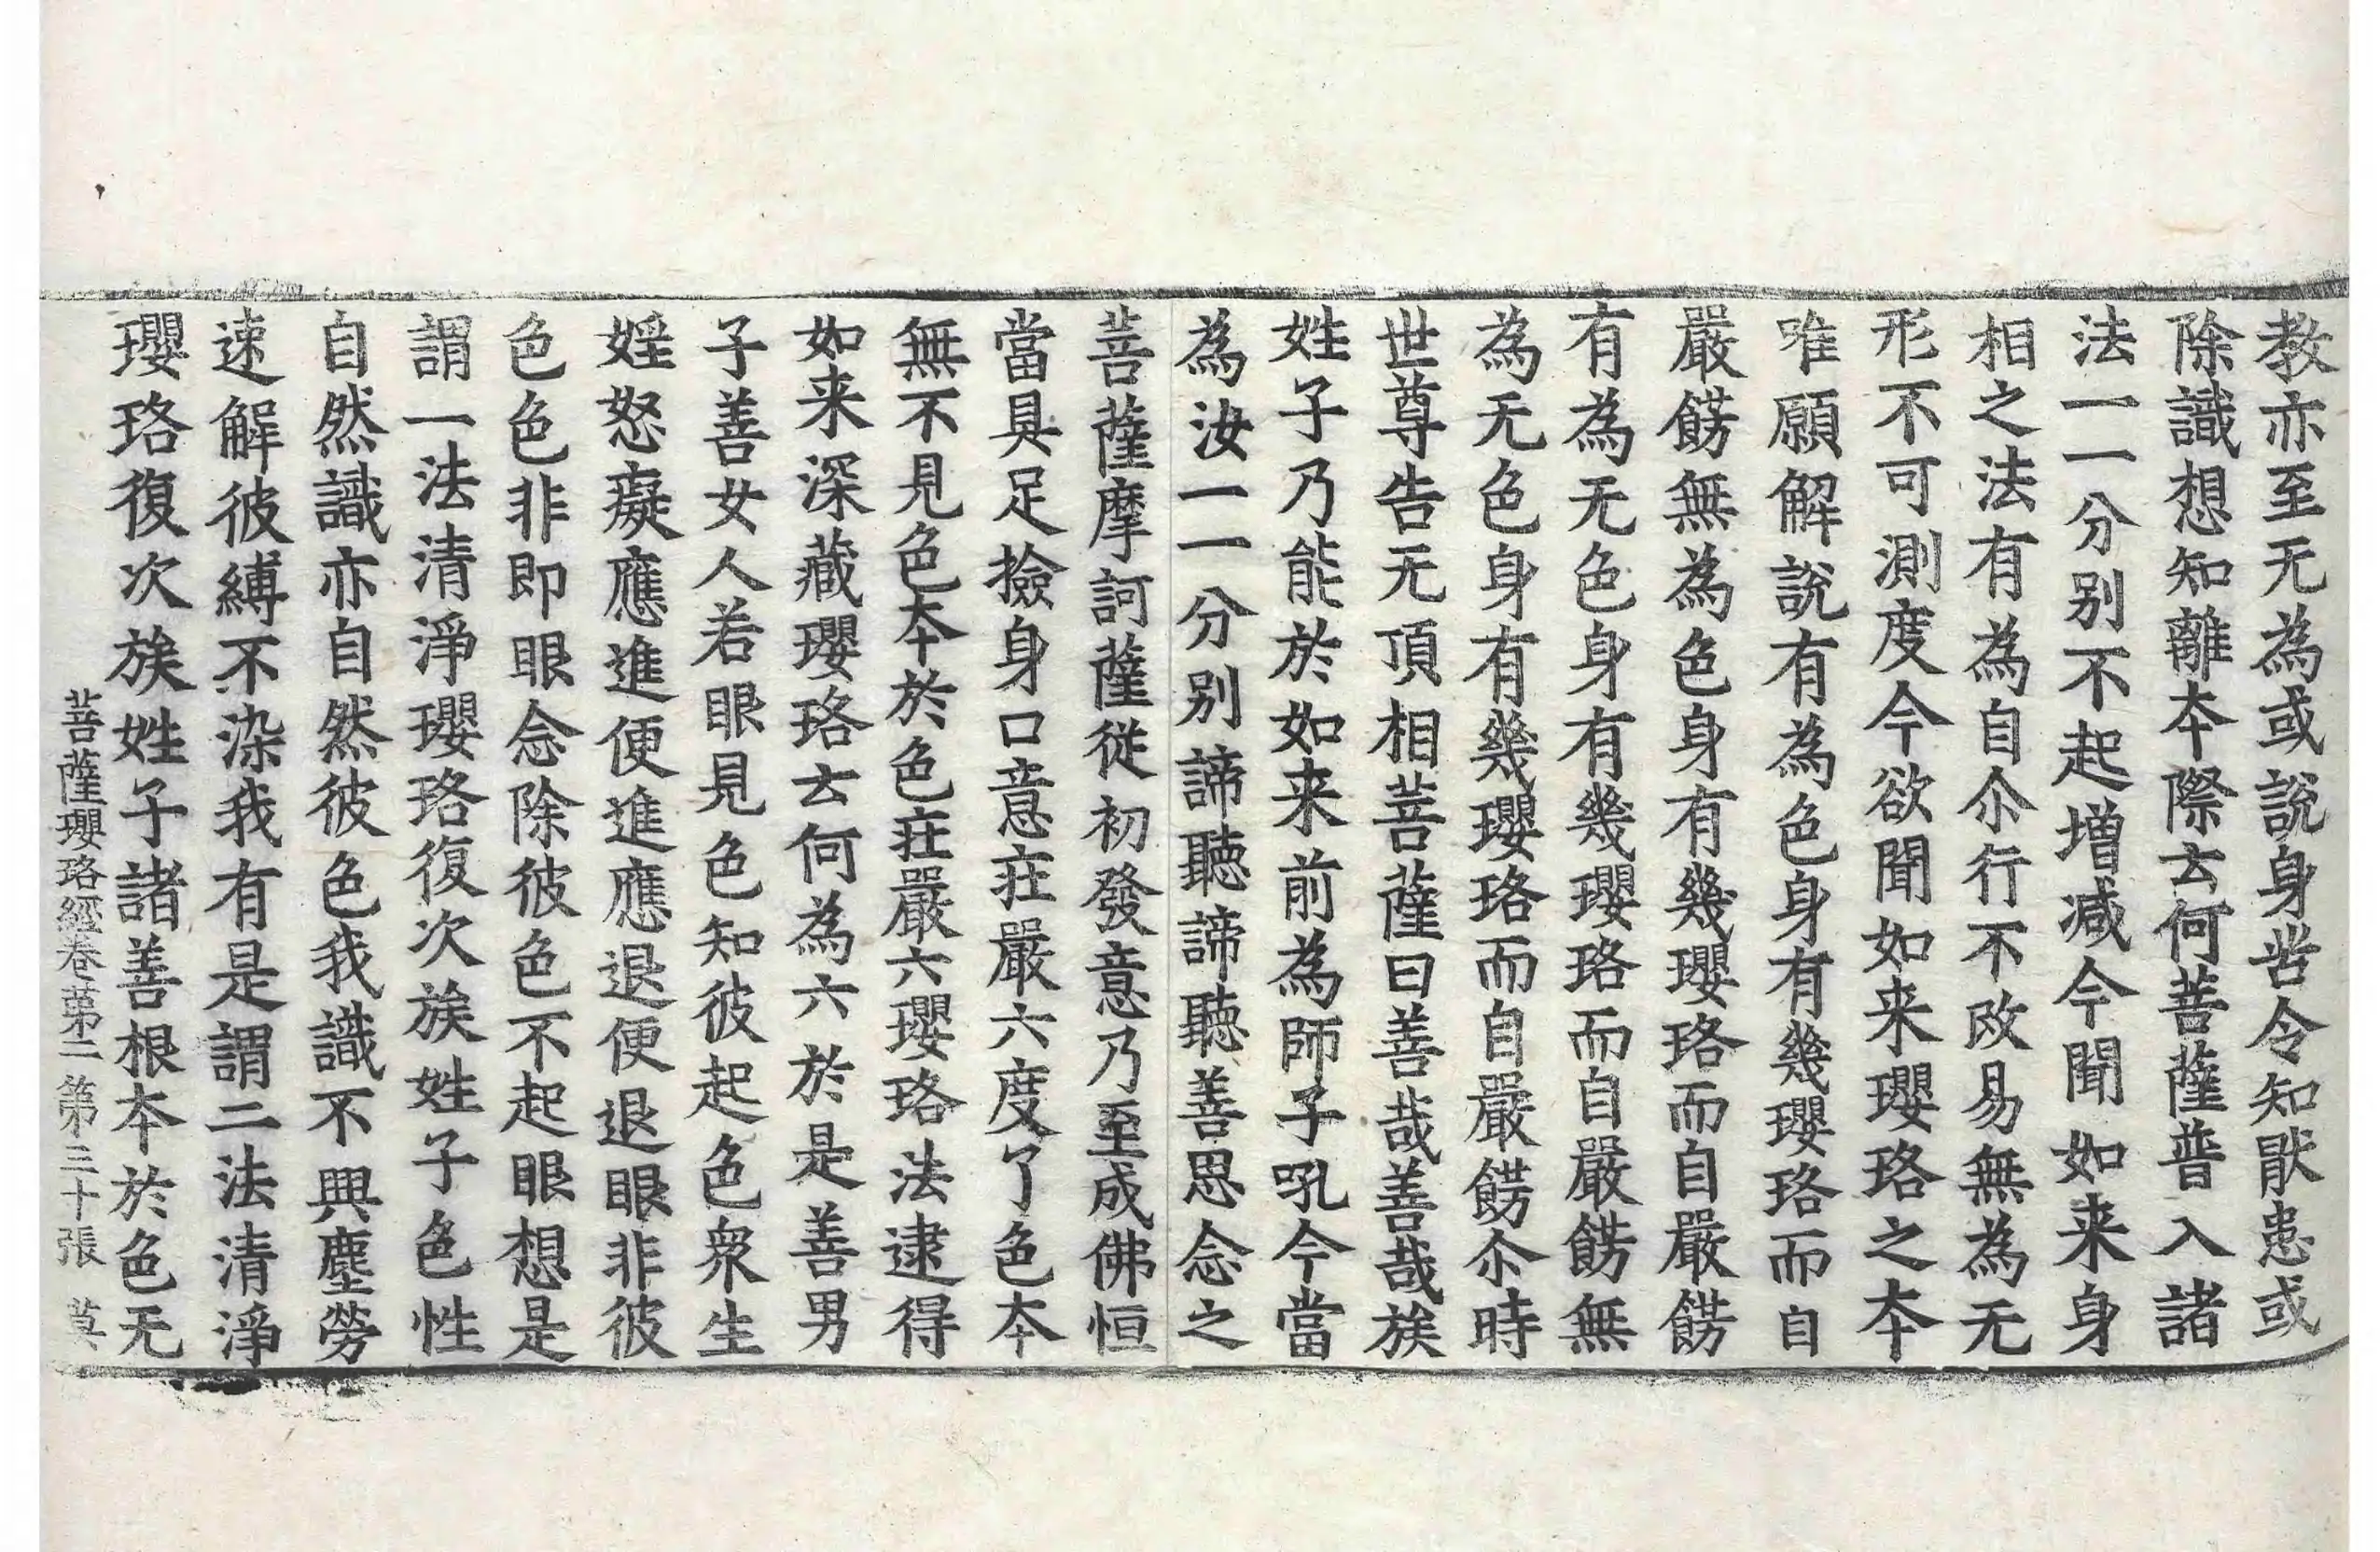 教亦至无為或說身苦令知猒患或
除識想知離本際去何菩薩普入諸
法一一分别不起增減今聞如来身
相之法有為自尒行不改易無為无
形不可測度今欲聞如来瓔珞之本
唯願解說有為色身有幾瓔珞而自
嚴餝無為色身有幾瓔珞而自嚴餝
有為无色身有幾瓔珞而自嚴餝無
為无色身有幾瓔珞而自嚴餝尒時
世尊告无頂相菩薩曰善哉善哉族
姓子乃能於如来前為師子吼今當
為汝一一分别諦聽諦聽善思念之
菩薩摩訶薩從初發意乃至成佛恒
當具足撿身口意莊嚴六度了色本
無不見色本於色莊嚴六瓔珞法逮得
如来深藏瓔珞去何為六於是善男
子善女人若眼見色知彼起色衆生
婬怒癡應進便進應退便退眼非彼
色色非即眼念除彼色不起眼想是
謂一法清淨瓔珞復次族姓子色性
自然識亦自然彼色我識不興塵勞
速解彼縛不染我有是謂二法清淨
瓔珞復次族姓子諸善根本於色无
菩薩瓔珞經卷第二 第三十張 莫